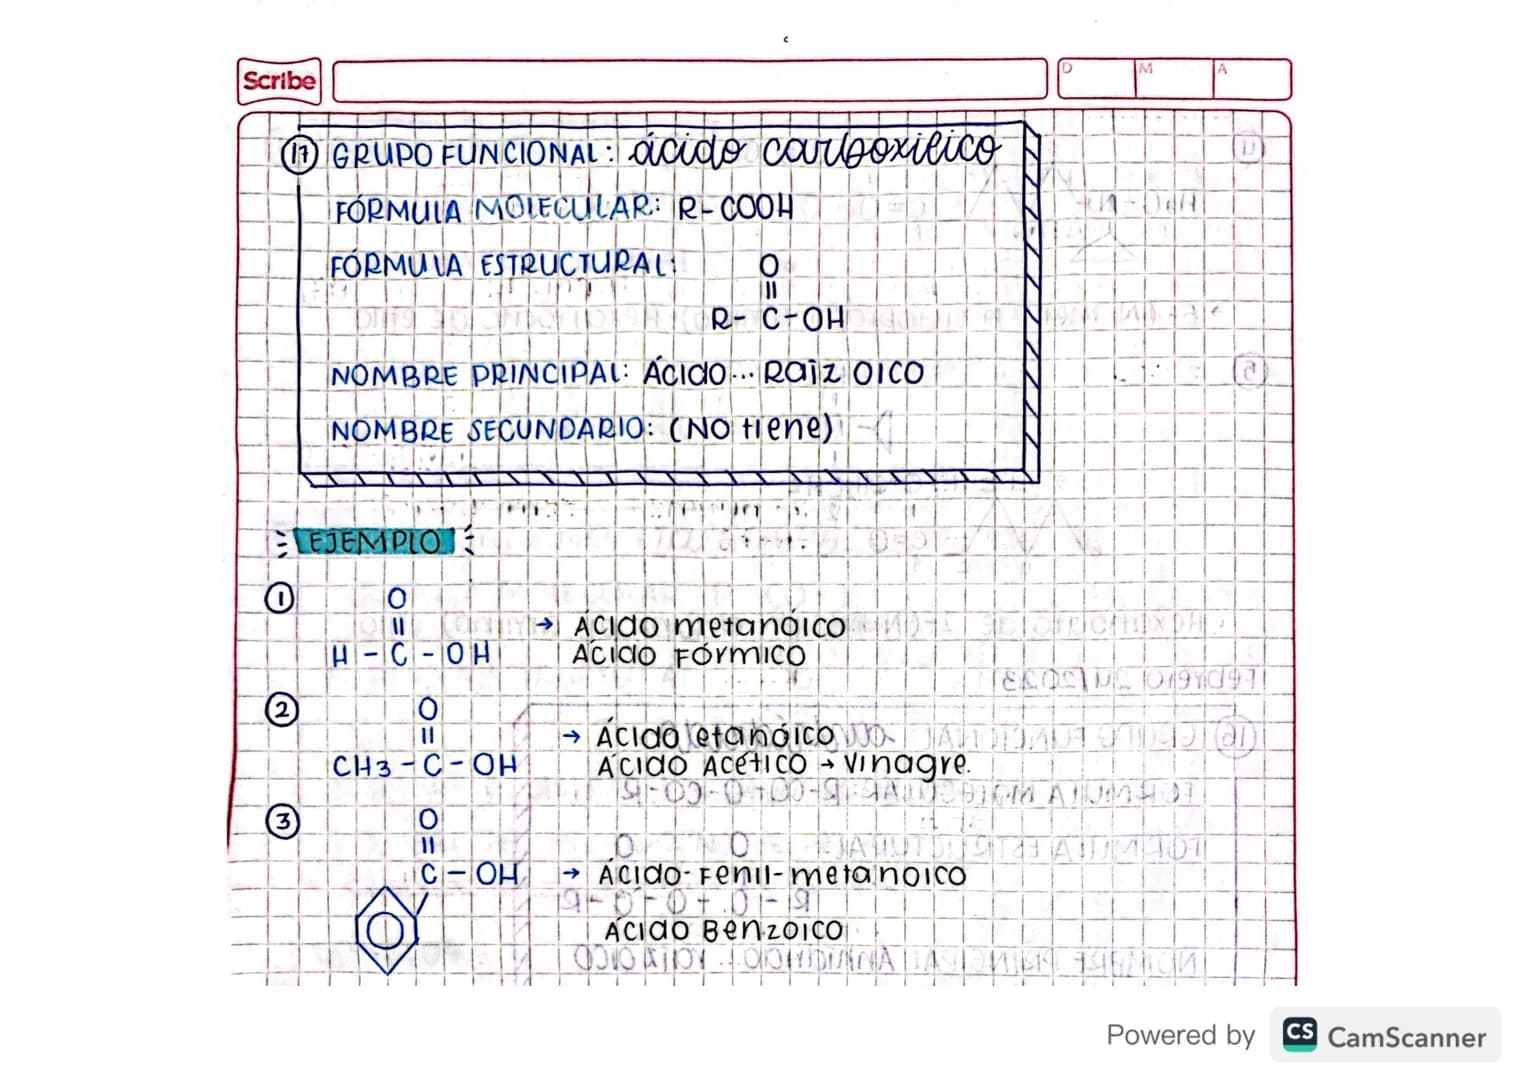 Scribe
D M A
17 GRUPO FUNCIONAL: ácido carboxilico
FÓRMULA MOLECULAR: R-COOH
FÓRMULA ESTRUCTURAL:
O
||
R- C-OH
NOMBRE PRINCIPAL: Ácido... Raiz OICO
NOMBRE SECUNDARIO: (NO tiene)
EJEMPLO
1
O
||
→ ÁCIDO metanóico
H - C - OH ÁCIDO FÓRMICO
2
O
||
→ ÁCIDO etanóico
CH3 - C - OH ÁCIDO Acético → Vinagre.
3
O
||
C - OH → ÁCIDO-Fenil-metanoico
ÁCIDO Benzoico
Powered by CS CamScanner